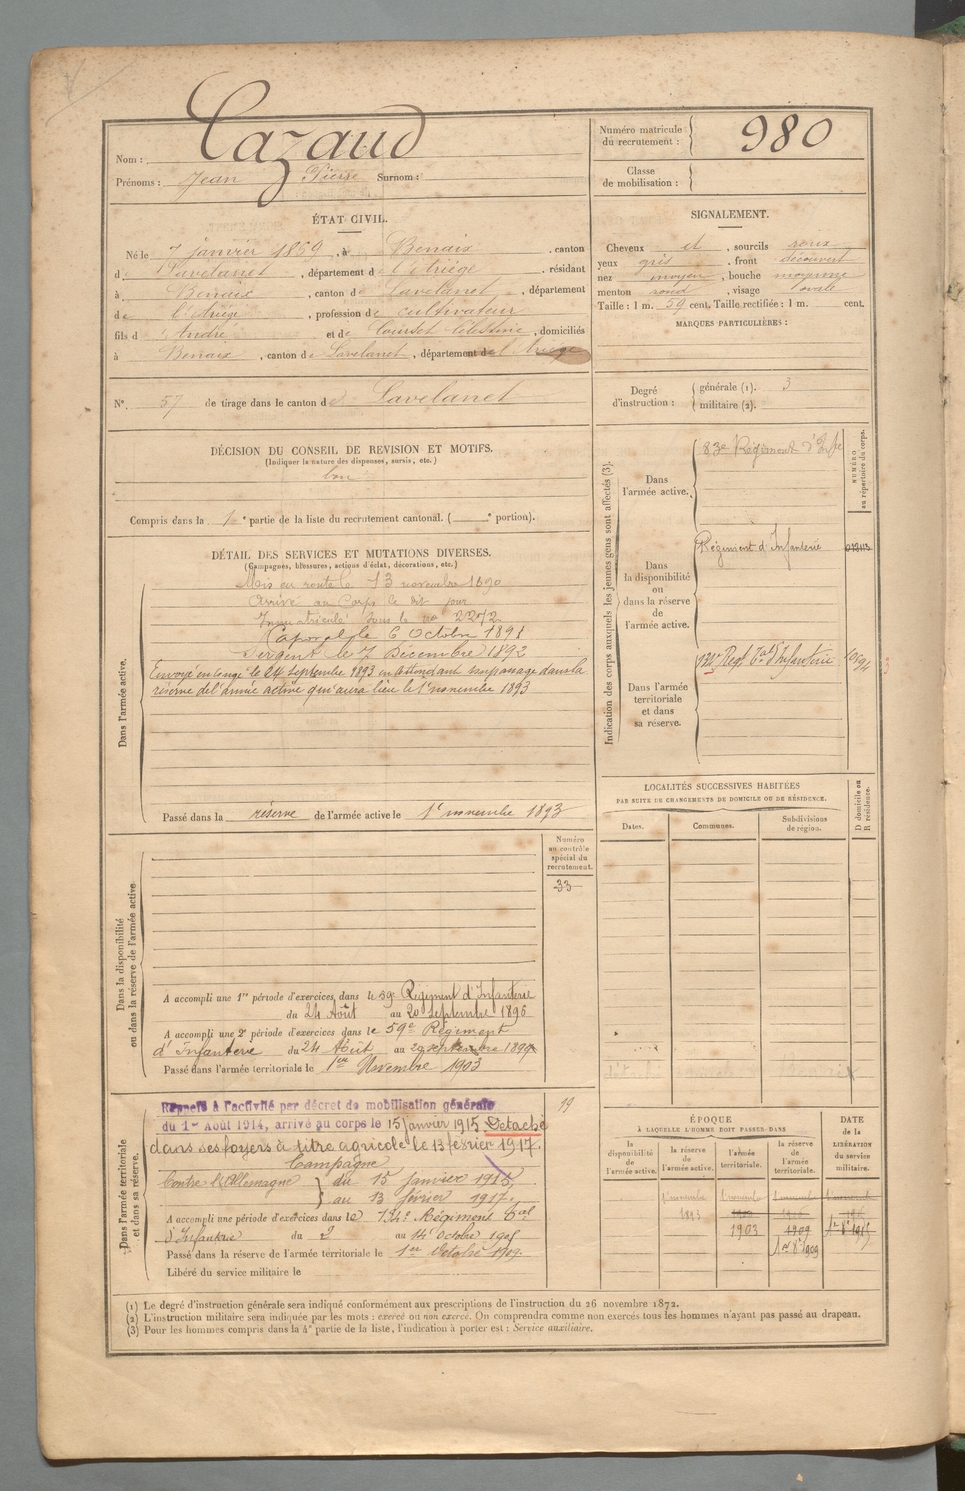 Nom : Cazaud
Prénoms : Jean Pierre Surnom :
Numéro matricule du recrutement : 980
Classe de mobilisation :
ÉTAT CIVIL.
Né le 7 janvier 1869, à Benaix, canton
de Lavelanet, département de l'Ariège, résidant
à Benaix, canton de Lavelanet, département
de l'Ariège, profession de cultivateur
fils d'André et de Célestine, domiciliés
à Benaix, canton de Lavelanet, département de l'Ariège
N° 57 de tirage dans le canton de Lavelanet
SIGNALEMENT.
Cheveux et, sourcils roux
yeux gris, front découvert
nez moyen, bouche moyenne
menton rond, visage ovale
Taille : 1 m. 59 cent. Taille rectifiée : 1 m. cent.
MARQUES PARTICULIÈRES :
Degré d'instruction : générale (1). 3
militaire (2).
DÉCISION DU CONSEIL DE REVISION ET MOTIFS.
(Indiquer la nature des dispenses, sursis, etc.)
bon
Compris dans la 1e partie de la liste du recrutement cantonal. ( e portion).
DÉTAIL DES SERVICES ET MUTATIONS DIVERSES.
(Campagnes, blessures, actions d'éclat, décorations, etc.)
Dans l'armée active.
Mis en route le 13 novembre 1890
Arrivé au Corps le dit jour
Immatriculé sous le no 2272
Caporal le 6 Octobre 1891
Sergent le 7 Décembre 1892
Envoyé en congé le 24 septembre 1893 en attendant son passage dans la
réserve de l'armée active qui aura lieu le 1er novembre 1893
Passé dans la réserve de l'armée active le 1er novembre 1893
Indication des corps auxquels les jeunes gens sont affectés (3).
NUMÉRO au répertoire du corps.
Dans l'armée active.
83e Régiment d'Infie
Dans la disponibilité ou dans la réserve de l'armée active.
Régiment d'Infanterie
Dans l'armée territoriale et dans sa réserve.
Regt tal d'Infanterie
LOCALITÉS SUCCESSIVES HABITÉES
PAR SUITE DE CHANGEMENTS DE DOMICILE OU DE RÉSIDENCE.
Dates. Communes. Subdivisions de région. D domicile ou R résidence.
Dans la disponibilité ou dans la réserve de l'armée active
Numéro au contrôle spécial du recrutement.
33
A accompli une 1re période d'exercices dans le 59e Régiment d'Infanterie
du 24 Août au 20 septembre 1896
A accompli une 2e période d'exercices dans le 59e Régiment
d'Infanterie du 24 Août au 20 septembre 1899
Passé dans l'armée territoriale le 1er Novembre 1903
Dans l'armée territoriale et dans sa réserve.
19
Rappelé à l'activité par décret de mobilisation générale
du 1er Août 1914, arrivé au corps le 15 janvier 1915 Detaché
dans ses foyers à titre agricole le 13 février 1917.
Campagne
Contre l'Allemagne du 15 janvier 1915
au 13 février 1917.
A accompli une période d'exercices dans le 134e Régiment tal
d'Infanterie du 2 au 14 Octobre 1905
Passé dans la réserve de l'armée territoriale le 1er Octobre 1909.
Libéré du service militaire le
ÉPOQUE
À LAQUELLE L'HOMME DOIT PASSER DANS
la disponibilité de l'armée active.
la réserve de l'armée active.
l'armée territoriale.
la réserve de l'armée territoriale.
DATE de la LIBÉRATION du service militaire.
1er novembre 1893
1903
1909
1er 8e 1909
1er 8e 1915
(1) Le degré d'instruction générale sera indiqué conformément aux prescriptions de l'instruction du 26 novembre 1872.
(2) L'instruction militaire sera indiquée par les mots : exercé ou non exercé. On comprendra comme non exercés tous les hommes n'ayant pas passé au drapeau.
(3) Pour les hommes compris dans la 4e partie de la liste, l'indication à porter est : Service auxiliaire.